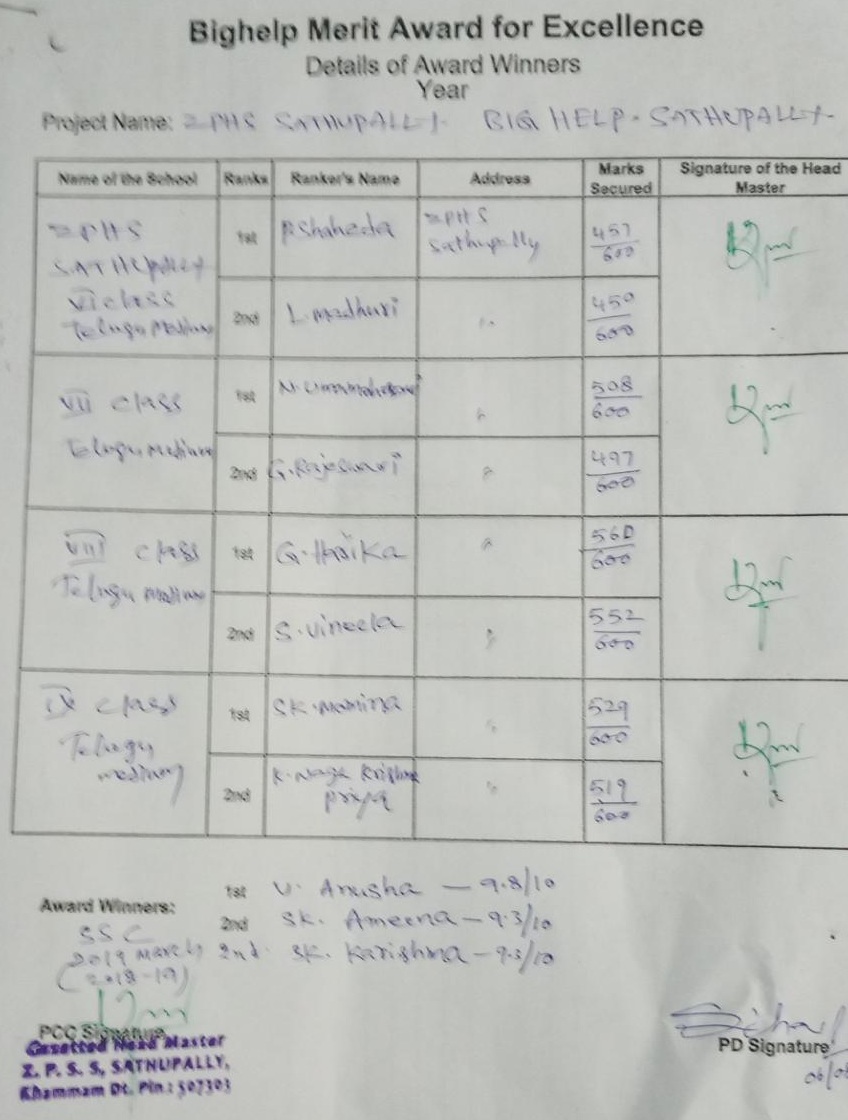 Bighelp Merit Award for Excellence
Details of Award Winners
Year
Project Name: ZPHS SATHUPALLY. BIG HELP - SATHUPALLY
Name of the School Ranks Ranker's Name Address Marks Secured Signature of the Head Master
ZPHS SATHUPALLY VI class Telugu Medium
1st P. Shaheda ZPHS Sathupally 457/600
2nd L. madhuri " 450/600
VII class Telugu Medium
1st N. Umamaheswari " 508/600
2nd G. Rajeswari " 497/600
VIII class Telugu medium
1st G. " 560/600
2nd S. Vineela " 552/600
IX class Telugu medium
1st SK. Momina " 529/600
2nd K. Naga Krishna priya " 519/600
Award Winners:
SSC
2019 March
(2018-19)
1st V. Anusha - 9.8/10
2nd SK. Ameena - 9.3/10
2nd SK. Karishma - 9.3/10
PCC Signature
Gazetted Head Master
Z. P. S. S, SATHUPALLY,
Khammam Dt. Pin: 507303
PD Signature